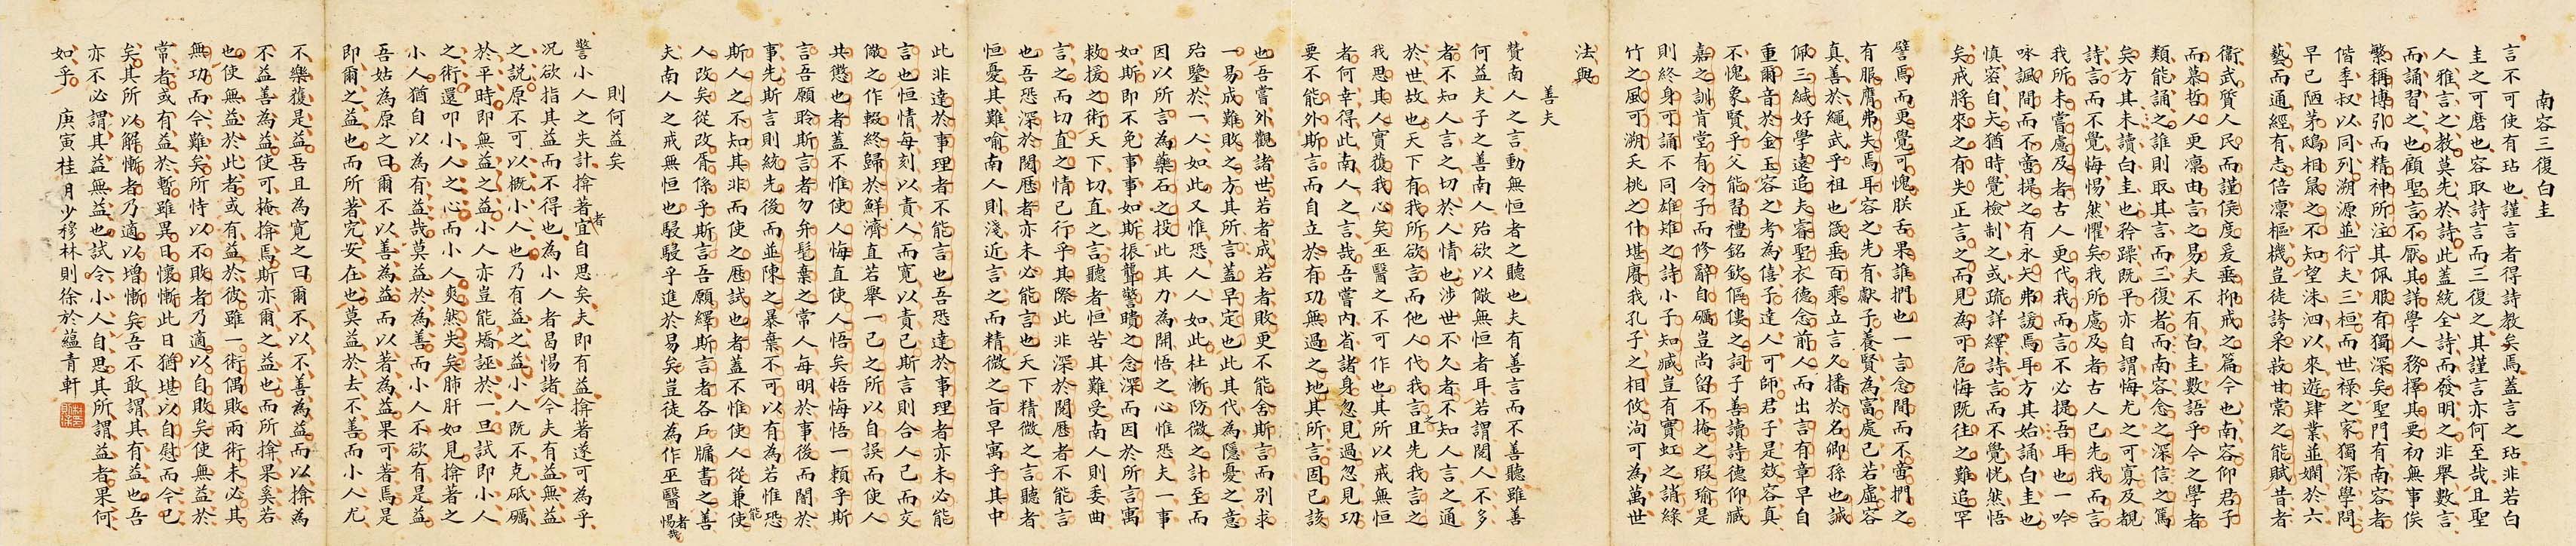 南容三復白圭
言不可使有玷也謹言者得詩教矣焉蓋言之玷非若白
圭之可磨也容取詩言而三復之其謹言亦何至哉且聖
人雅言之教莫先於詩此蓋統全詩而發明之非舉數言
而誦習之也顧聖言不厭其詳學人務擇其要初無事侈
繁稱博引而精神所注其佩服有獨深矣聖門有南容者
偕季叔以同列溯源並衍夫三桓而世祿之家獨深學問
早已陋茅鴟相鼠之不知望洙泗以來遊肆業並嫻於六
藝而通經有志倍凜樞機豈徒誇采菽甘棠之能賦昔者
衛武質人民而謹侯度爰垂抑戒之篇今也南容仰君子
而慕哲人更凜由言之易夫不有白圭數語乎今之學者
類能誦之誰則取其言而三復者而南容念之深信之篤
矣方其未讀白圭也矜躁既平亦自謂悔尤之可寡及覩
詩言而不覺悔惕然懼矣我所處及者古人已先我而言
我所未嘗慮及者古人更代我而言不必提吾耳也一吟
咏諷間而不啻提之有永矢弗諼焉耳方其始誦白圭也
慎密自失猶時覺檢制之或疏詳繹詩言而不覺恍然悟
矣戒將來之有失正言之而見為可危悔既往之難追罕
譬焉而更覺可愧朕舌果誰捫也一言念間而不啻捫之
有服膺弗失焉耳容之先有獻子養賢為富處己若虛容
真善於繩武乎祖也箴垂百乘立言久播於名卿孫也誠
佩三緘好學遠追夫睿聖衣德念前人而出言有章早自
重爾音於金玉容之考為僖子達人可師君子是效容真
不愧象賢乎父能習禮銘欽傴僂之詞子善讀詩德仰臧
嘉之訓肯堂有令子而修辭自礪豈尚留不掩之瑕瑜是
則終身可誦不同雄雉之詩小子知臧豈有實虹之誚綠
竹之風可溯夭桃之什堪賡我孔子之相攸洵可為萬世
法與
善夫
贊南人之言動無恒者之聽也夫有善言而不善聽雖善
何益夫子之善南人殆欲以儆無恒者耳若謂閱人不多
者不知人言之切於人情也涉世不久者不知人言之通
於世故也天下有我所欲言而他人代我言且先我言之
我思其人實獲我心矣巫醫之不可作也其所以戒無恒
者何幸得此南人之言哉吾嘗內省諸身忽見過忽見功
要不能外斯言而自立於有功無過之地其所言固已該
也吾嘗外觀諸世若者成若者敗更不能舍斯言而別求
一易成難敗之方其所言蓋早定也此其代為隱憂之意
殆鑒於一人如此又惟恐人人如此杜漸防微之計至而
因以所言為藥石之投此其力為開悟之心惟恐夫一事
如斯即不免事事如斯振聾警瞶之念深而因於所言寓
救援之術天下切直之言聽者恒苦其難受南人則委曲
言之而切直之情已行乎其際此非深於閱歷者不能言
也吾恐深於閱歷者亦未必能言也天下精微之言聽者
恒憂其難喻南人則淺近言之而精微之旨早寓乎其中
此非達於事理者不能言也吾恐達於事理者亦未必能
言也恒情每刻以責人而寬以責己斯言則合人己而交
儆之作輟終歸於鮮濟直若舉一己之所以自誤而使人
共懲也者蓋不惟使人悔直使人悟矣悟悔悟一賴乎斯
言吾願聆斯言者勿弁髦棄之常人每明於事後而闇於
事先斯言則統先後而並陳之暴棄不可以有為若惟恐
斯人之不知其非而使之歷試也者蓋不惟使人從兼能使
人改矣從改胥係乎斯言吾願繹斯言者各戶牖書之善
夫南人之戒無恒也駸駸乎進於易矣豈徒為作巫醫者惕哉
則何益矣
警小人之失計揜著者宜自思矣夫即有益揜著遂可為乎
况欲指其益而不得也為小人者曷惕諸今夫有益無益
之說原不可以概小人也乃有益之益小人既不克砥礪
於平時即無益之益小人亦豈能矯誣於一旦試即小人
之術還叩小人之心而小人爽然失矣肺肝如見揜著之
小人猶自以為有益哉莫益於為善而小人不欲有是益
吾姑為原之曰爾不以善為益而以著為益果可著焉是
即爾之益也而所著究安在也莫益於去不善而小人尤
不樂獲是益吾且為寬之曰爾不以不善為益而以揜為
不益善為益使可掩揜焉斯亦爾之益也而所揜果奚若
也使無益於此者或有益於彼雖一術偶敗兩術未必其
無功而今難矣所恃以不敗者乃適以自敗矣使無益於
常者或有益於暫雖異日懷慚此日猶堪以自慰而今已
矣其所以解慚者乃適以增慚矣吾不敢謂其有益也吾
亦不必謂其益無益也試令小人自思其所謂益者果何
如乎　庚寅桂月少穆林則徐於蘊青軒